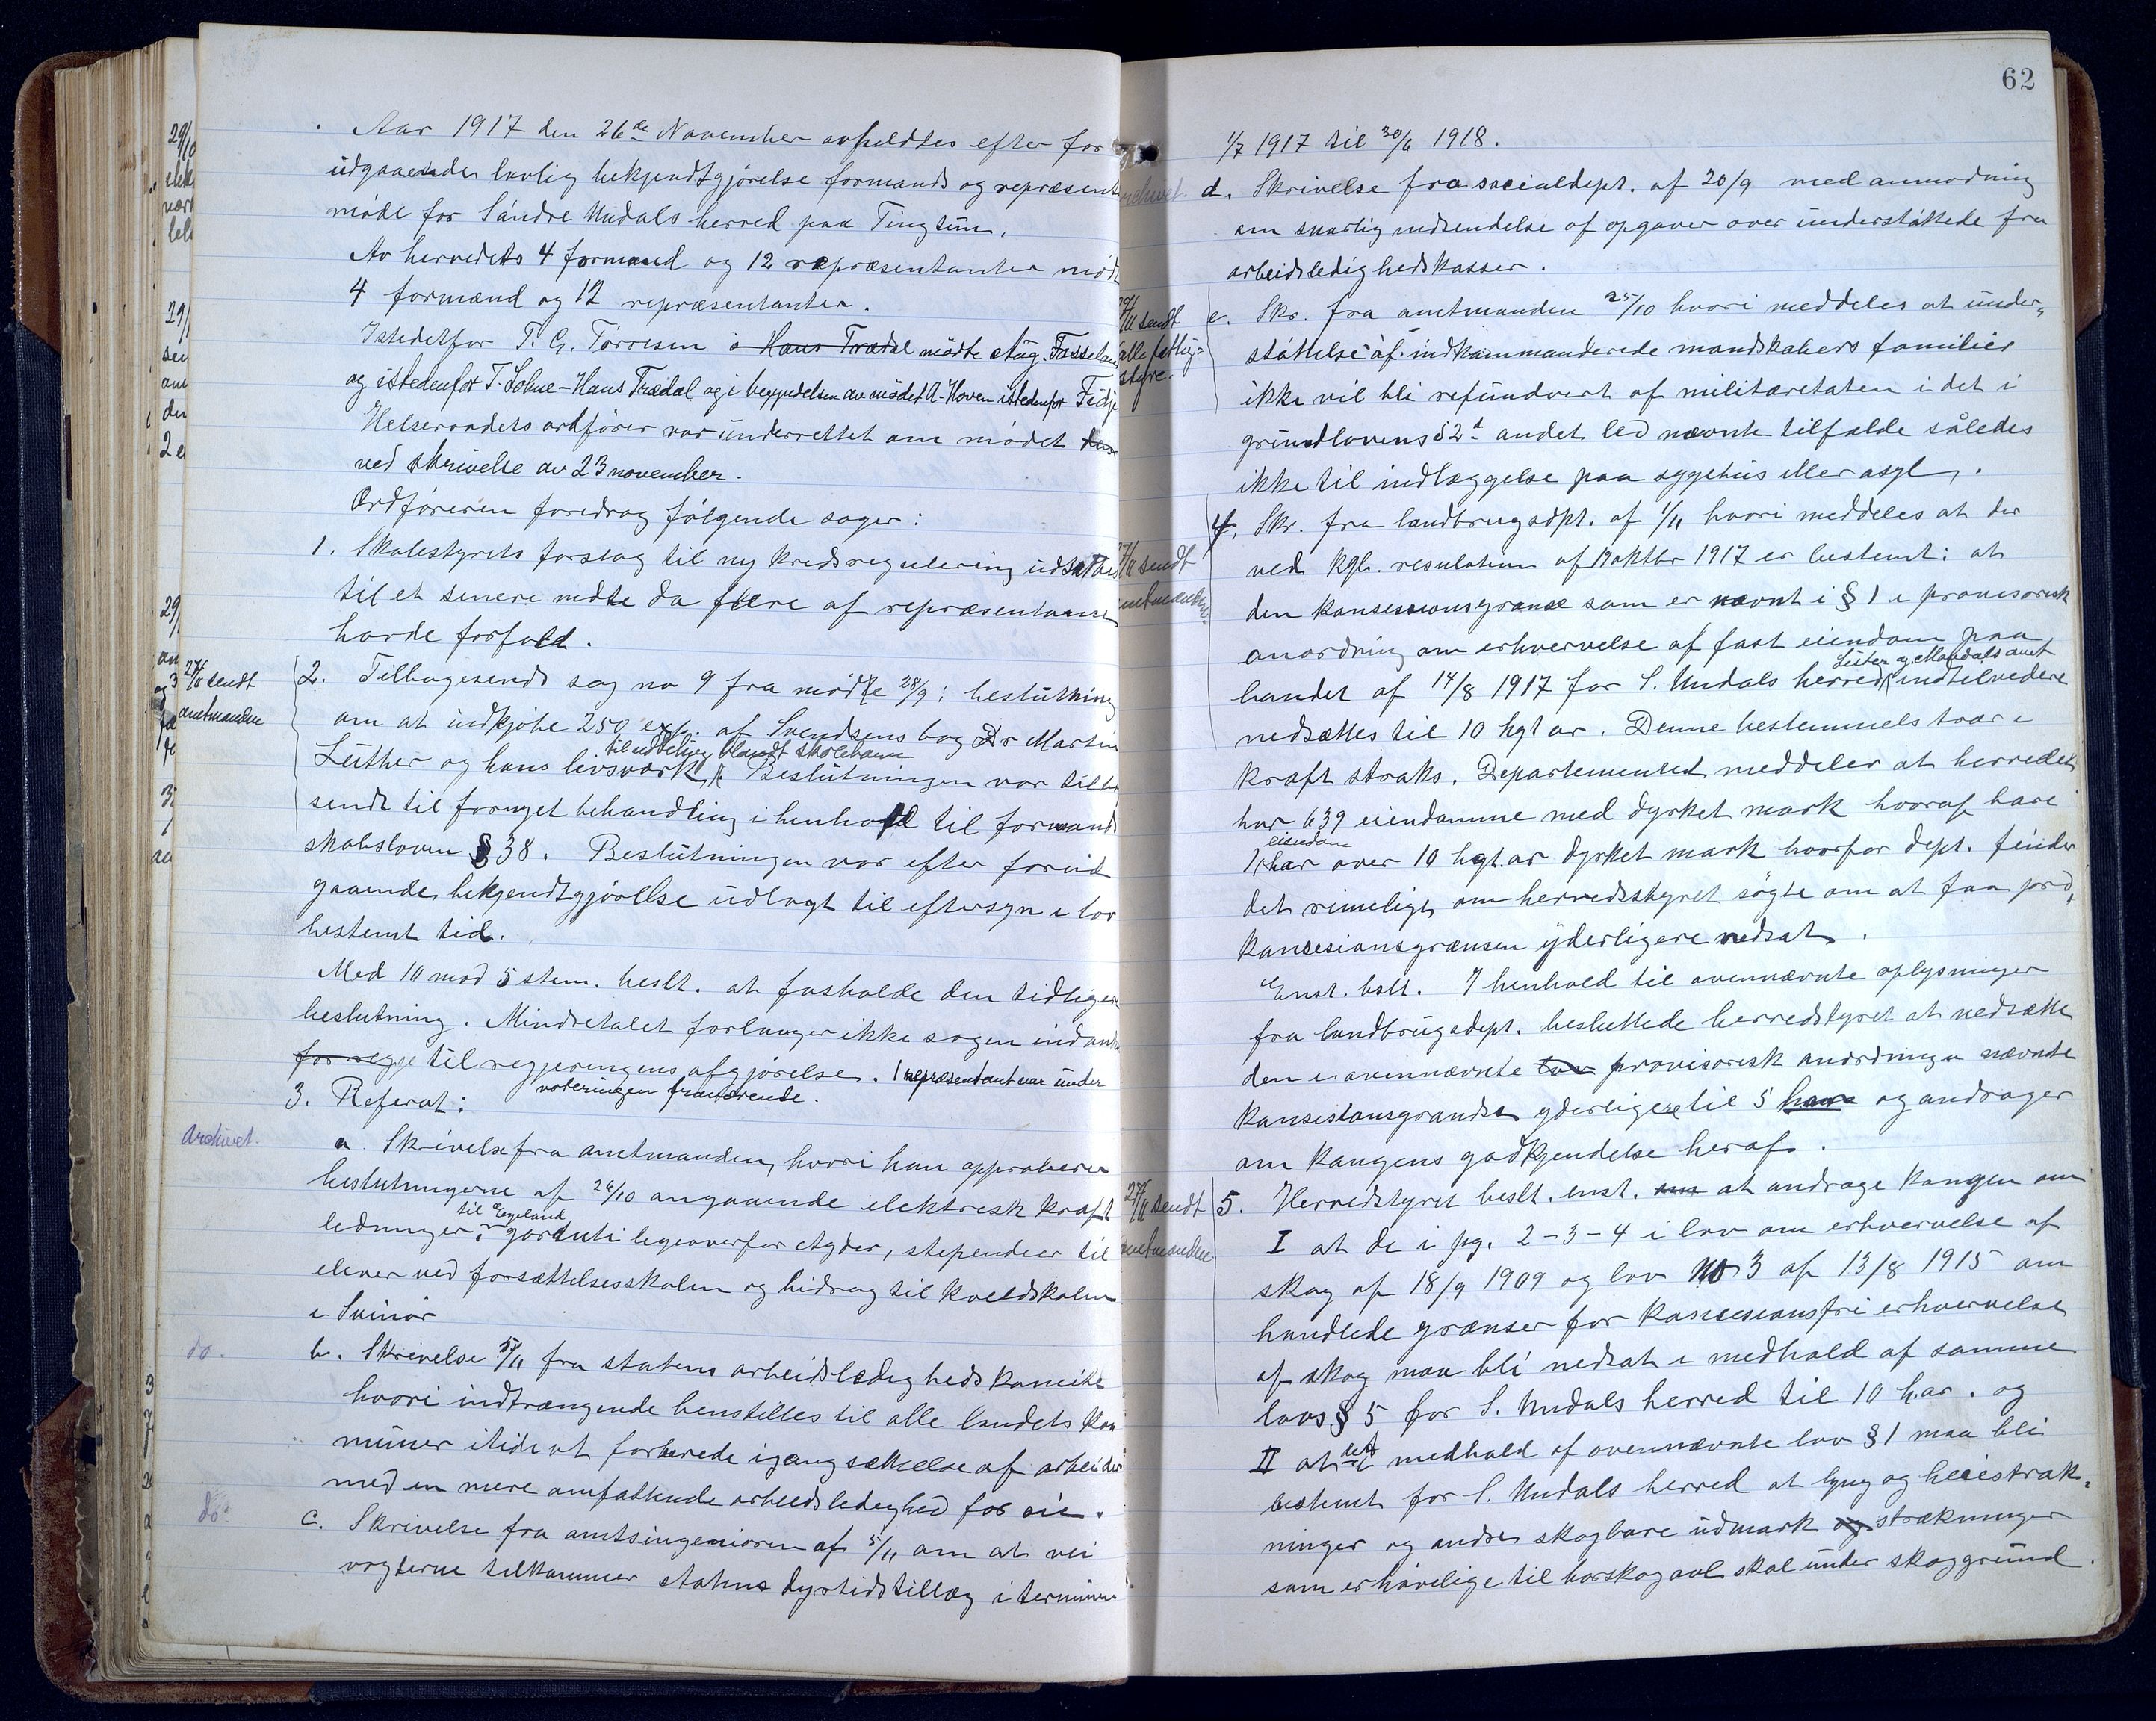 Aar 1917 den 26de November avholdtes efter for
udgaaende lovlig bekjendtgjörelse formands og repræsent
möde for Söndre Undals herred paa Tingtun.
Av herredets 4 formænd og 12 repræsentanter mödt
4 formænd og 12 repræsentanter.
Istedetfor T. G. Törresen o Hans Trædal mödte Aug. Tasselan
og istedenfor T. Lohne - Hans Trædal og i begyndelsen av mödet A. Hoven istedenfor Fidje
Helseraadets ordförer var underrettet om mödet
ved skrivelse av 23 november.
Ordföreren foredrog fölgende sager:
1. Skolestyrets forslag til ny kredsregulering udsættes
til et senere möte da flere af repræsentanter
havde forfald.
27/11 sendt
amtmanden
2. Tilbagesendt sag no 9 fra mödte 28/9: beslutning
om at indkjöbe 250 expl. af Svendsens bog Dr Martin
til uddeling blandt skolebarn
Luther og hans livsværk. Beslutningen var tilba
sendt til fornyet behandling i henhold til formand
skabsloven § 38. Beslutningen var efter forud
gaaende bekjendtgjörelse udlagt til eftersyn i lov
bestemt tid.
Med 10 mod 5 stem. beslt. at fasholde den tidligere
beslutning. Mindretalet forlanger ikke sagen ind
for regge til regjeringens afgjörelse. 1 repræsentant var under
voteringen fraværende.
3. Referat:
Archivet.
a. Skrivelse fra amtmanden, hvori han approberer
beslutningerne af 26/10 angaaende elektrisk kraft
til Egeland
ledninger, garanti ligeoverfor Agder, stipendier til
elever ved forsættelsesskolen og bidrag til kveldskolen
i Svinör
do.
b. Skrivelse 5/11 fra statens arbeidsledighedskomite
hvori indtrængende henstilles til alle landets kom
muner itide at forberede igangsættelse af arbeider
med en mere omfattende arbeidsledighed for öie.
do.
c. Skrivelse fra amtsingeniören af 5/11 om at vei
vogterne tilkommer statens dyrtidstillæg i terminen
62
1/7 1917 til 30/6 1918.
Archivet.
d. Skrivelse fra socialdept. af 20/9 med anmodning
om snarlig indsendelse af opgaver over understöttede fra
arbeidsledighedskasser.
29/11 sendt
alle fattig=
styre.
e. Skr. fra amtmanden 25/10 hvori meddeles at under„
stöttelse af indkommanderede mandskabers familier
ikke vil bli refundert af militæretaten i det i
grundlovens § 2 andet led nævnte tilfælde således
ikke til indlæggelse paa sygehus eller asyl.
27/11 sendt
amtmanden
4. Skr. fra landbrugsdpt. af 1/11 hvori meddeles at der
ved kgl. resolution af oktbr 1917 er bestemt: at
den konsessionsgrænse som er nævnt i § 1 i provisorisk
anordning om erhvervelse af fast eiendom paa
Lister og Mandals amt
landet af 14/8 1917 for S. Undals herred indtilvedere
nedsættes til 10 hgt ar. Denne bestemmels træer i
kraft straks. Departementet meddeler at herredet
har 639 eiendomme med dyrket mark hvoraf bare
eiendom
1 har over 10 hgt.ar dyrket mark hvorfor dept. finder
det rimelige om herredsstyret sögte om at faa
konsesionsgrænsen yderligere nedsat.
Enst. bslt. I henhold til ovennævnte oplysninger
fra landbrugsdept. besluttede herredstyret at nedsætte
den i ovennævnte lov provisorisk anordning nævnte
konsesionsgrændse yderligere til 5 har og andrager
om Kongens godkjendelse heraf.
27/11 sendt
amtmanden
5. Herredstyret beslt. enst. om at andrage Kongen om
I at de i pg. 2-3-4 i lov om erhvervelse af
skog af 18/9 1909 og lov No 3 af 13/8 1915 om
handlede grænser for konsesionsfri erhvervelse
af skog maa bli nedsat i medhold af samme
lovs § 5 for S. Undals herred til 10 h.ar. og
II at det i medhold af ovennævnte lov § 1 maa bli
bestemt for S. Undals herred at lyng og heiestræk„
ninger og andre skogbare udmark og strækninger
som er hövelige til barskogavl skal under skoggrund